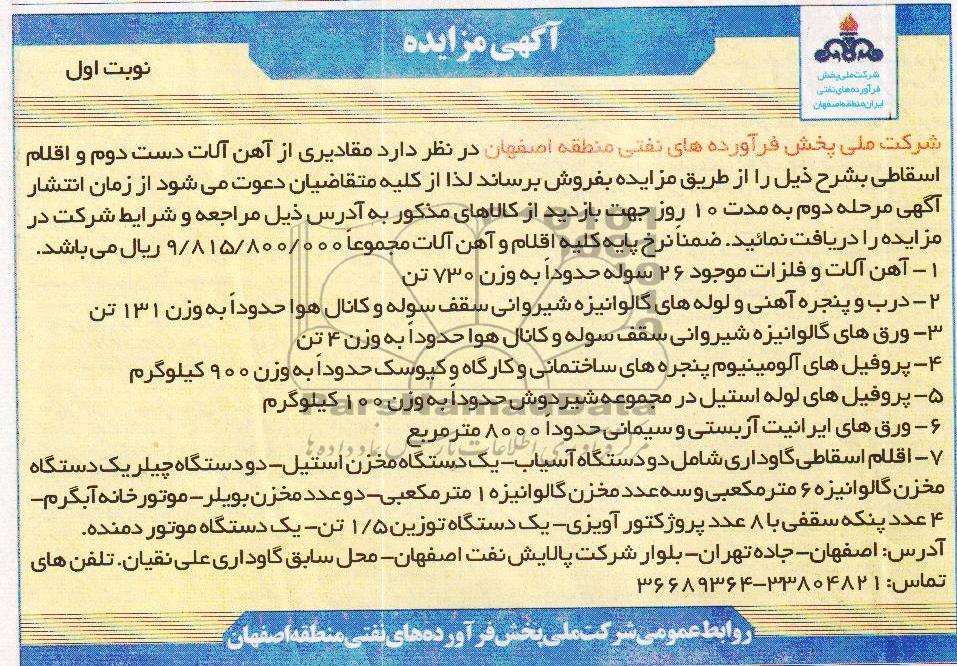 آگهی مزایده
نوبت اول
شرکت ملی پخش
فرآورده های نفتی
ایران منطقه اصفهان
شرکت ملی پخش فرآورده های نفتی منطقه اصفهان در نظر دارد مقادیری از آهن آلات دست دوم و اقلام
اسقاطی بشرح ذیل را از طریق مزایده بفروش برساند لذا از کلیه متقاضیان دعوت می شود از زمان انتشار
آگهی مرحله دوم به مدت ۱۰ روز جهت بازدید از کالاهای مذکور به آدرس ذیل مراجعه و شرایط شرکت در
مزایده را دریافت نمائید. ضمناً نرخ پایه کلیه اقلام و آهن آلات مجموعاً ۹/۸۱۵/۸۰۰/۰۰۰ ریال می باشد.
۱- آهن آلات و فلزات موجود ۲۶ سوله حدوداً به وزن ۷۳۰ تن
۲- درب و پنجره آهنی و لوله های گالوانیزه شیروانی سقف سوله و کانال هوا حدوداً به وزن ۱۳۱ تن
۳- ورق های گالوانیزه شیروانی سقف سوله و کانال هوا حدوداً به وزن ۴ تن
۴- پروفیل های آلومینیوم پنجره های ساختمانی و کارگاه و کیوسک حدوداً به وزن ۹۰۰ کیلوگرم
۵- پروفیل های لوله استیل در مجموعه شیردوش حدوداً به وزن ۱۰۰ کیلوگرم
ParsNamadData
۶- ورق های ایرانیت آزبستی و سیمانی حدودا ۸۰۰۰ مترمربع
۷- اقلام اسقاطی گاوداری شامل دو دستگاه آسیاب- یک دستگاه مخزن استیل- دو دستگاه چیلر یک دستگاه
مخزن گالوانیزه ۶ متر مکعبی و سه عدد مخزن گالوانیزه ۱ متر مکعبی- دو عدد مخزن بویلر- موتورخانه آبگرم-
۴ عدد پنکه سقفی با ۸ عدد پروژکتور آویزی- یک دستگاه توزین ۱/۵ تن- یک دستگاه موتور دمنده.
آدرس: اصفهان- جاده تهران- بلوار شرکت پالایش نفت اصفهان- محل سابق گاوداری علی نقیان. تلفن های
تماس: ۳۳۸۰۴۸۲۱-۳۶۶۸۹۳۶۴
روابط عمومی شرکت ملی پخش فرآورده های نفتی منطقه اصفهان